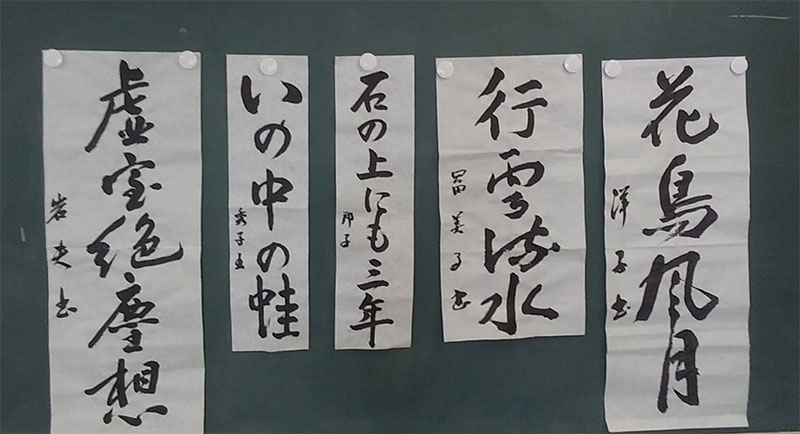 花鳥風月
洋子書
行雲流水
美子書
石の上にも三年
邦子
いの中の蛙
秀子書
虚室絶塵想
岩夫書